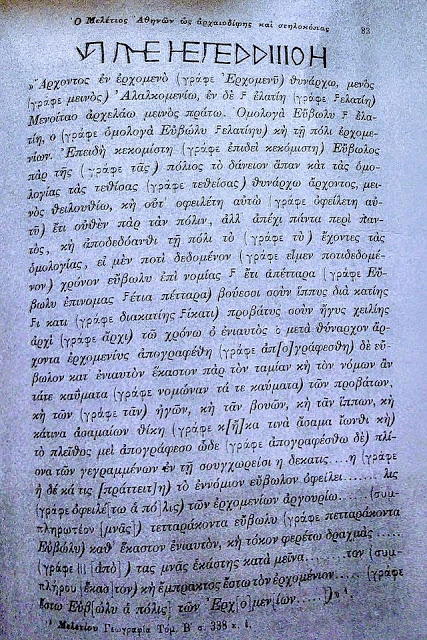 Ὁ Μελέτιος Ἀθηνῶν ὡς ἀρχαιοδίφης καὶ στηλοκόπας 83
»Ἄρχοντος ἐν ἐρχομενὸ (γράφε Ἐρχομενῦ) θυνάρχω, μενὸς
(γράφε μεινὸς) Ἀλαλκομενίω, ἐν δὲ Ϝ ἐλατίη (γράφε Ϝελατίη)
Μενοίταο ἀρχελάω μεινὸς πράτω. Ὁμολογὰ Εὔβωλυ Ϝ ἐλα-
τίη, ο (γράφε ὁμολογὰ Εὐβώλυ Ϝελατίηυ) κὴ τῇ πόλι ἐρχομε-
νίων. Ἐπειδὴ κεκομίστη (γράφε ἐπιδεὶ κεκόμιστη) Εὔβωλος
πὰρ τῆς (γράφε τᾶς) πόλιος τὸ δάνειον ἅπαν κὰτ τὰς ὁμο-
λογίας τὰς τεθίσας (γράφε τεθείσας) θυνάρχω ἄρχοντος, μει-
νὸς θειλουθίω, κὴ οὔτ' ὀφειλέτη αὐτῶ (γράφε ὀφείλετη αὐ-
τῦ) ἔτι οὐθὲν πὰρ τὰν πόλιν, ἀλλ' ἀπέχι πάντα περὶ παν-
τὸς, κὴ ἀποδεδόανθι τῇ πόλι τὸ (γράφε τὺ) ἔχοντες τὰς
ὁμολογίας, εἰ μὲν ποτὶ δεδομένον (γράφε εἶμεν ποτιδεδομέ-
νον) χρόνον εὔβωλυ ἐπὶ νομίας Ϝ ἔτι ἀπέτταρα (γράφε Εὔ-
βωλυ ἐπινομας Ϝέτια πέτταρα) βούεσσι σοὺν ἵππυς διὰ κατίης
Ϝι κατι (γράφε διακατίης Ϝίκατι) προβάτυς σοὺν ἤγυς χειλίης
ἀρχὶ (γράφε ἄρχι) τῶ χρόνω ὁ ἐνιαυτὸς ὁ μετὰ θύναρχον ἄρ-
χοντα ἐρχομενίυς ἀπογραφέθη (γράφε ἀπ[ο]γράφεσθη) δὲ εὔ-
βωλον κατ' ἐνιαυτὸν ἕκαστον πὰρ τὸν ταμίαν κὴ τὸν νόμων ἂν
τάτε καύματα (γράφε νομώναν τά τε καύματα) τῶν προβάτων,
κὴ τῶν (γράφε τᾶν) ἠγῶν, κὴ τᾶν βουῶν, κὴ τᾶν ἵππων, κὴ
κάτινα ἀσαμαίων θίκη (γράφε κ[ἤ]κα τινὰ ἄσαμα ἴωνθι κὴ)
τὸ πλεῖθος μεὶ ἀπογράφεσο ὧδε (γράφε ἀπογραφέσθω δὲ) πλί-
ονα τῶν γεγραμμένων ἐν τῇ σουγχωρείσει η δεκατις....η (γράφε
ἠ δέ κά τις [πράττειτ]η) τὸ ἐννόμιον εὔβωλον ὀφείλει........λις
(γράφε ὀφειλέ[τω ἁ πό]λις) τῶν ἐρχομενίων ἀργουρίω.......(συμ-
πληρωτέον [μνᾶς]) τετταράκοντα εὔβωλυ (γράφε πετταράκοντα
Εὐβώλυ) καθ' ἕκαστον ἐνιαυτὸν, κὴ τόκον φερέτω δραχμὰς......
(γράφε ||| [ἀπὸ]) τας μνᾶς ἑκάστης κατὰ μεῖνα.......τον (συμ-
πλήρου [ἕκασ]τὸν) κὴ ἔμπρακτος ἔστω τὸν ἐρχομένιον......(γράφε
ἔστω Εὐβ[ώλυ ἁ πόλις] τῶν Ἐρχ[ο]μεν[ίων......]»¹.
¹ Μελετίου Γεωγραφία Τόμ. Β' σ. 338 κ. ἑ.